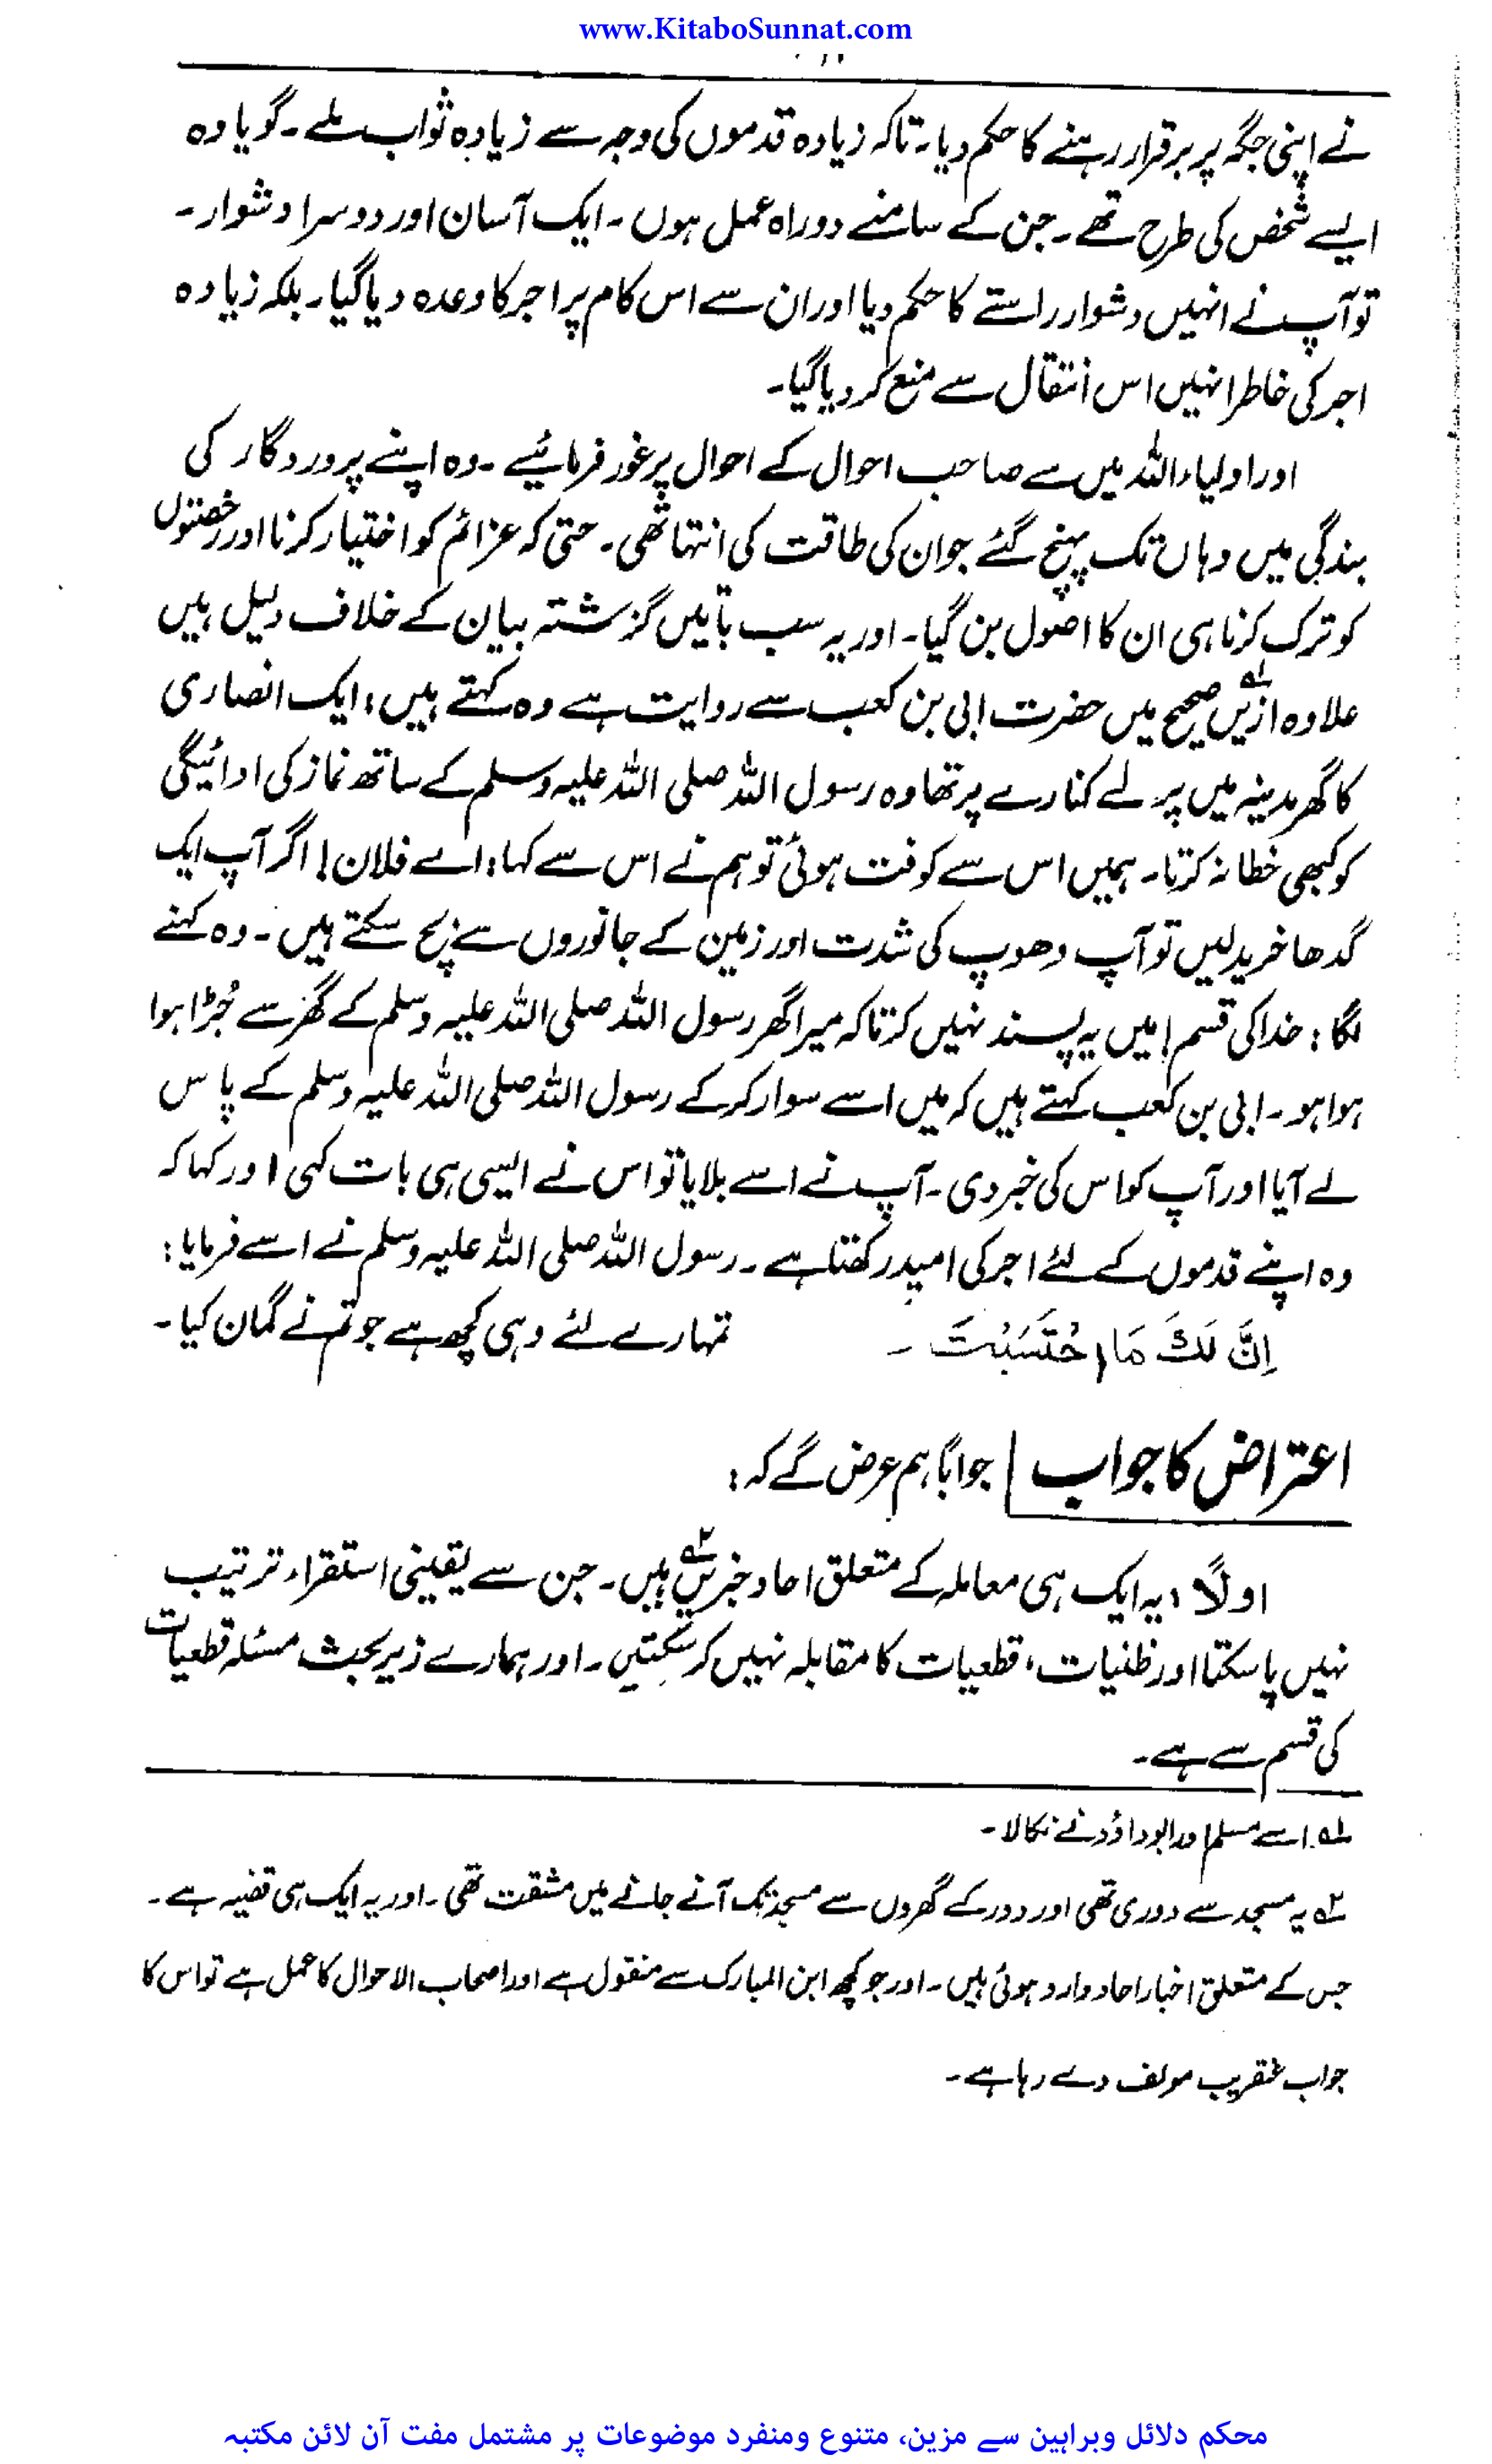 www.KitaboSunnat.com
نے اپنی جگہ پر برقرار رہنے کا حکم دیا۔ تاکہ زیادہ قدموں کی وجہ سے زیادہ ثواب ملے۔ گویا وہ
ایسے شخص کی طرح تھے۔ جن کے سامنے دو راہ عمل ہوں۔ ایک آسان اور دوسرا دشوار۔
تو آپ نے انہیں دشوار راستے کا حکم دیا اور ان سے اس کام پر اجر کا وعدہ دیا گیا۔ بلکہ زیادہ
اجر کی خاطر انہیں اس انتقال سے منع کر دیا گیا۔
اور اولیاء اللہ میں سے صاحب احوال کے احوال پر غور فرمائیے۔ وہ اپنے پروردگار کی
بندگی میں وہاں تک پہنچ گئے جو ان کی طاقت کی انتہا تھی۔ حتی کہ عزائم کو اختیار کرنا اور رخصتوں
کو ترک کرنا ہی ان کا اصول بن گیا۔ اور یہ سب باتیں گزشتہ بیان کے خلاف دلیل ہیں
علاوہ ازیں صحیح۱؎ میں حضرت ابی بن کعب سے روایت ہے وہ کہتے ہیں: ایک انصاری
کا گھر مدینہ میں پرلے کنارے پر تھا وہ رسول اللہ صلی اللہ علیہ وسلم کے ساتھ نماز کی ادائیگی
کو کبھی خطا نہ کرتا۔ ہمیں اس سے کوفت ہوئی تو ہم نے اس سے کہا: اے فلان! اگر آپ ایک
گدھا خرید لیں تو آپ دھوپ کی شدت اور زمین کے جانوروں سے بچ سکتے ہیں۔ وہ کہنے
لگا: خدا کی قسم! میں یہ پسند نہیں کرتا کہ میرا گھر رسول اللہ صلی اللہ علیہ وسلم کے گھر سے جُڑا ہوا
ہوا ہو۔ ابی بن کعب کہتے ہیں کہ میں اسے سوار کر کے رسول اللہ صلی اللہ علیہ وسلم کے پاس
لے آیا اور آپ کو اس کی خبر دی۔ آپ نے اسے بلایا تو اس نے ایسی ہی بات کہی اور کہا کہ
وہ اپنے قدموں کے لئے اجر کی امید رکھتا ہے۔ رسول اللہ صلی اللہ علیہ وسلم نے اسے فرمایا:
اِنَّ لَكَ مَا احْتَسَبْتَ ۔ تمہارے لئے وہی کچھ ہے جو تم نے گمان کیا۔
اعتراض کا جواب جواباً ہم عرض گے کہ:
اولاً: یہ ایک ہی معاملہ کے متعلق احاد خبریں۲؎ ہیں۔ جن سے یقینی استقراء ترتیب
نہیں پا سکتا اور ظنیات، قطعیات کا مقابلہ نہیں کر سکتیں۔ اور ہمارے زیر بحث مسئلہ قطعیات
کی قسم سے ہے۔
۱؎ اسے مسلم اور ابو داؤد نے نکالا۔
۲؎ یہ مسجد سے دوری تھی اور دور کے گھروں سے مسجد تک آنے جانے میں مشقت تھی۔ اور یہ ایک ہی قضیہ ہے۔
جس کے متعلق اخبار احاد وارد ہوئی ہیں۔ اور جو کچھ ابن المبارک سے منقول ہے اور اصحاب الاحوال کا عمل ہے تو اس کا
جواب عنقریب مولف دے رہا ہے۔
محکم دلائل وبراہین سے مزین، متنوع ومنفرد موضوعات پر مشتمل مفت آن لائن مکتبہ